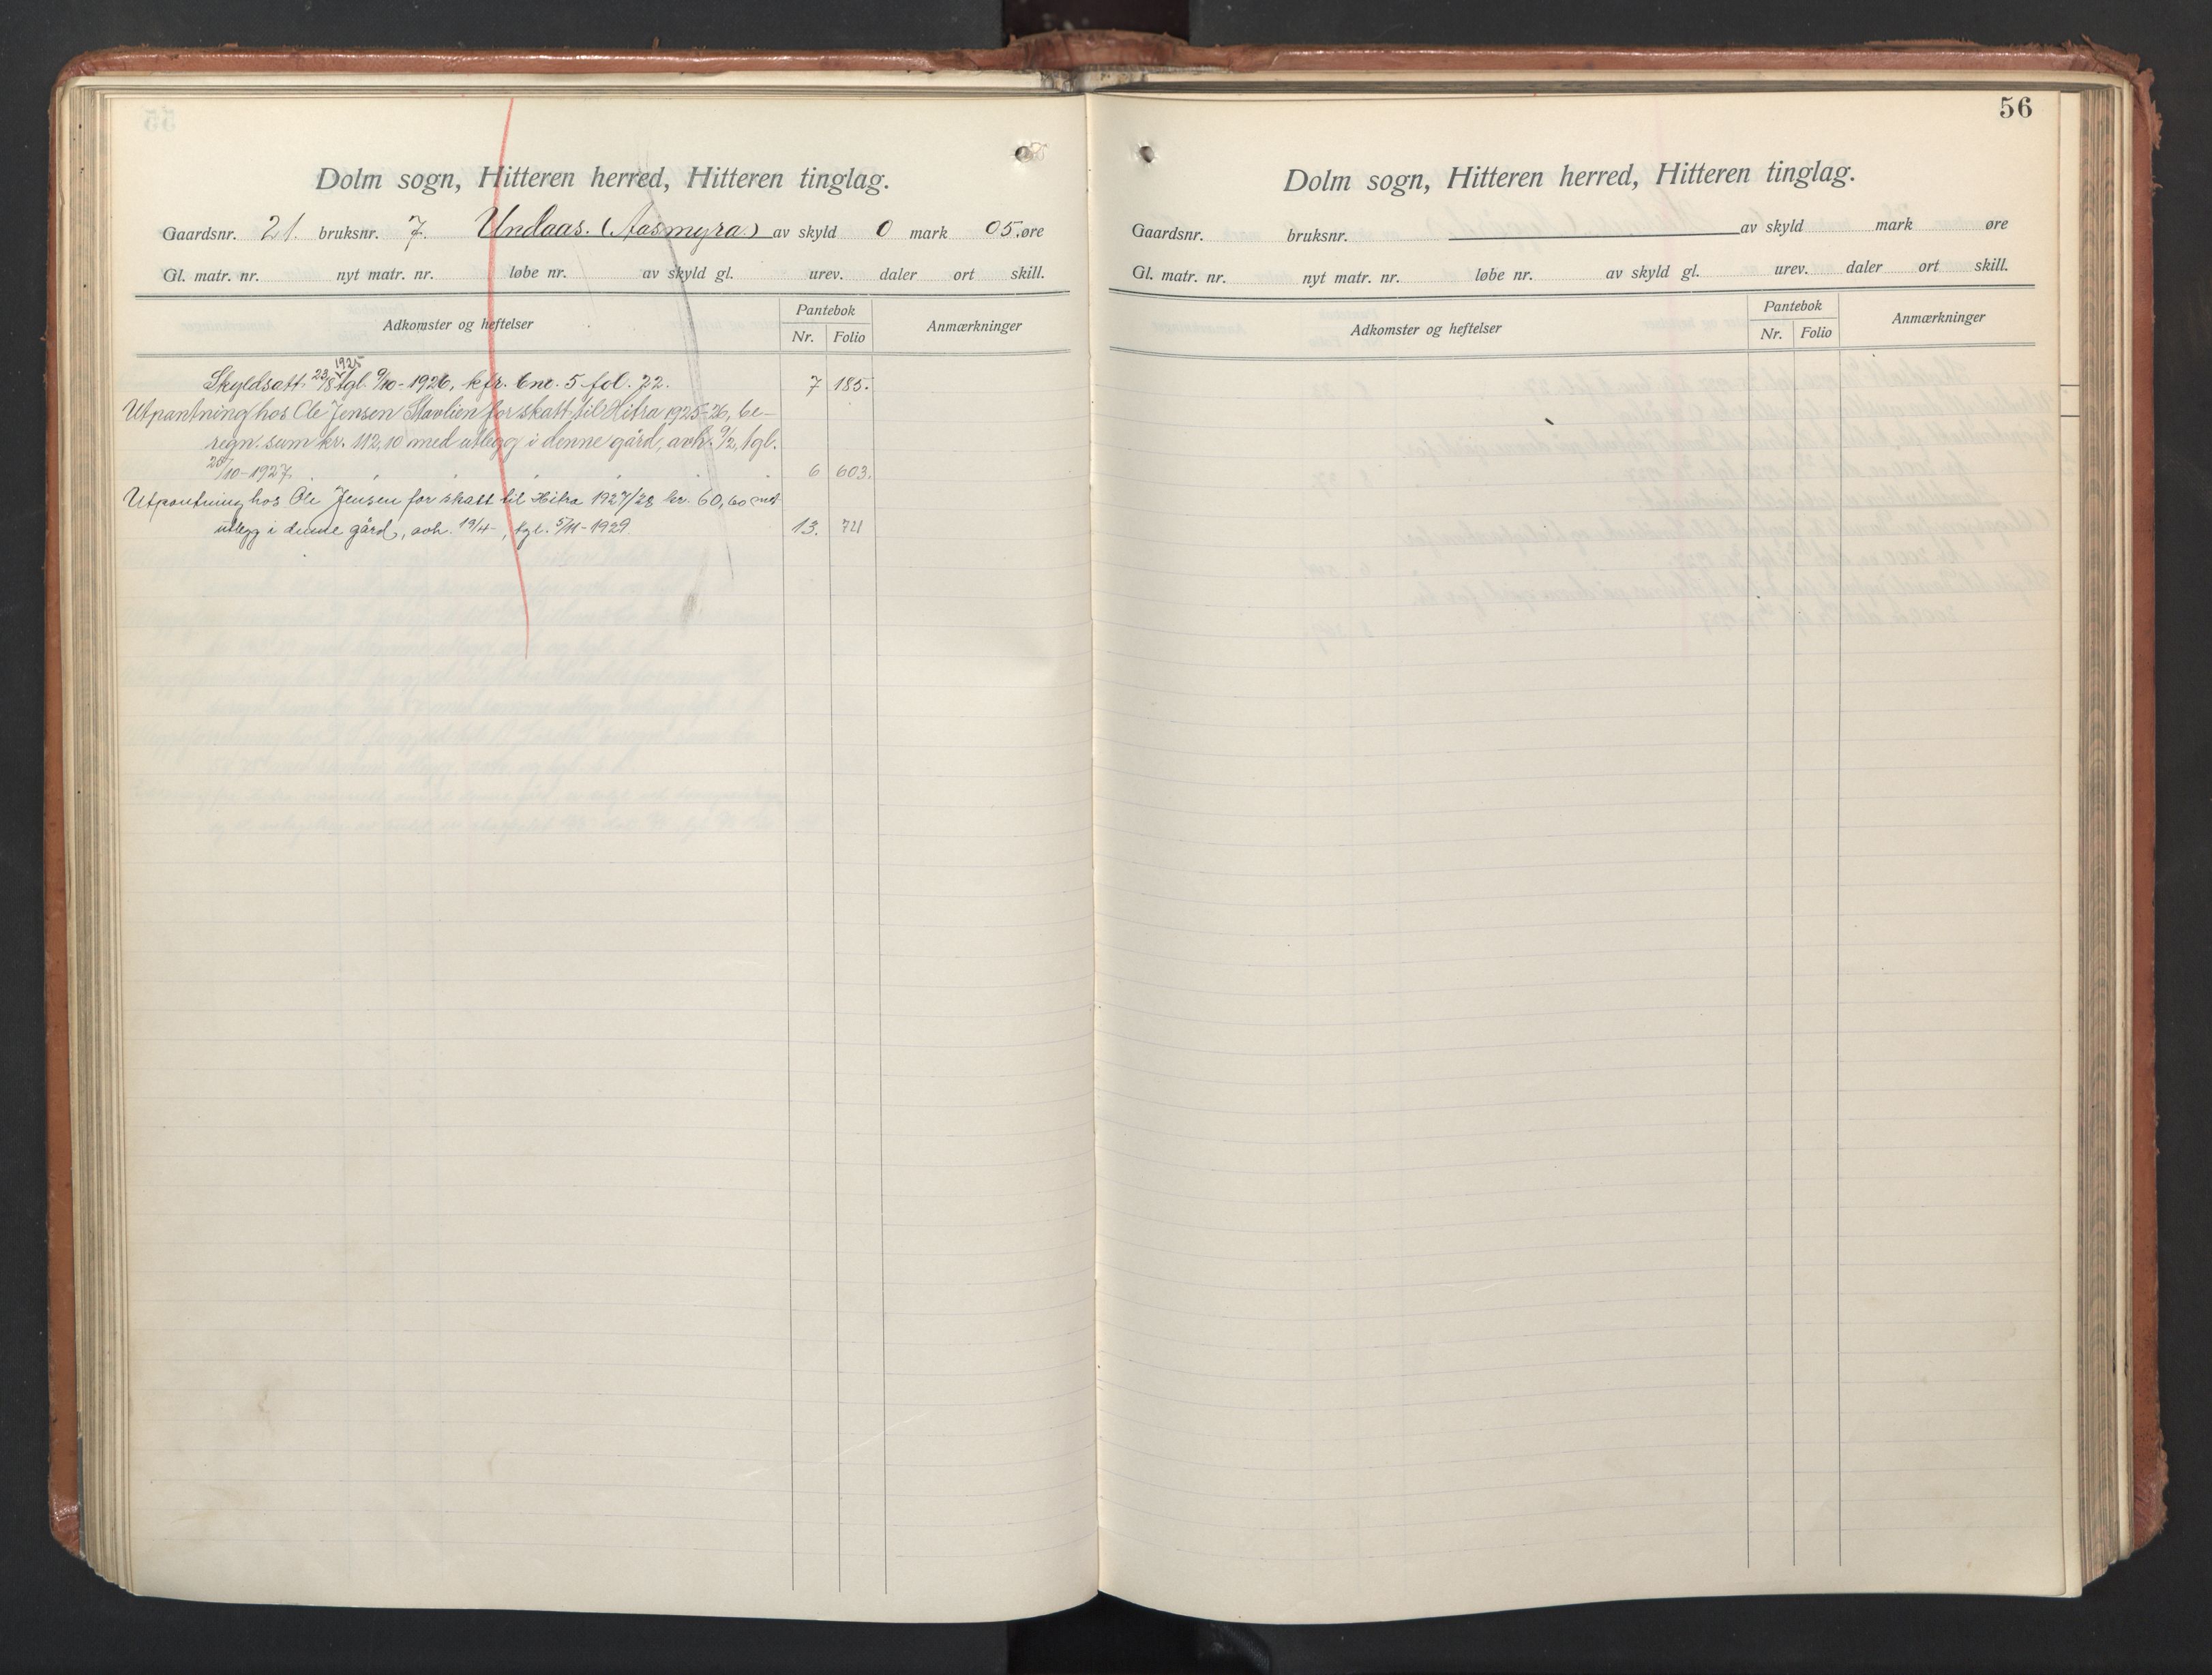 Dolm sogn, Hitteren herred, Hitteren tinglag.
Gaardsnr. 21. bruksnr. 7. Undaas. (Aasmyra.) av skyld 0 mark 05. øre
Gl. matr. nr. nyt matr. nr. løbe nr. av skyld gl. urev. daler ort skill.
Adkomster og heftelser Pantebok Anmærkninger
Nr. Folio
1925
Skyldsatt 23/8 tgl. 9/10-1926, kfr. bnr. 5 fol. 22. 7 185.
Utpantning hos Ole Jensen Stavlien for skatt til Hitra 1925-26, be-
regn. sum kr. 112,10 med utlegg i denne gård, avh. 9/2, tgl.
20/10-1927. 6 603.
Utpantning hos Ole Jensen for skatt til Hitra 1927/28 kr. 60,60 mot
utlegg i denne gård, avh. 19/4-, tgl. 5/11-1929. 13. 711
56
Dolm sogn, Hitteren herred, Hitteren tinglag.
Gaardsnr. bruksnr. av skyld mark øre
Gl. matr. nr. nyt matr. nr. løbe nr. av skyld gl. urev. daler ort skill.
Adkomster og heftelser Pantebok Anmærkninger
Nr. Folio